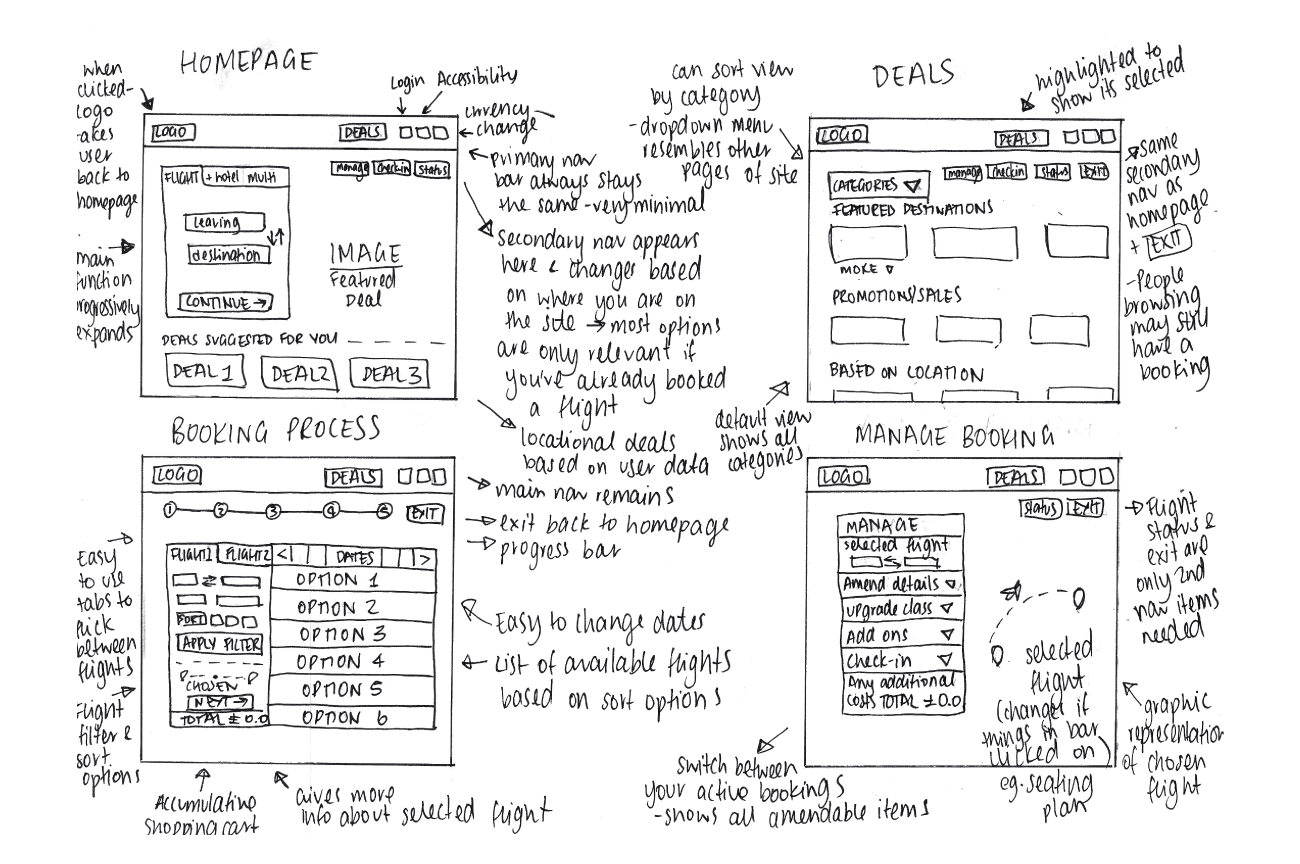 HOMEPAGE
when
clicked-
logo
takes
user
back to
homepage
main
function
progressively
expands
Login Accessibility
currency
change
LOGO
DEALS
manage
Checkin
Status
FLIGHT
+ hotel
multi
Leaving
destination
CONTINUE →
IMAGE
Featured
Deal
DEALS SUGGESTED FOR YOU
DEAL 1
DEAL 2
DEAL 3
primary nav
bar always stays
the same - very minimal
Secondary nav appears
here & changes based
on where you are on
the site → most options
are only relevant if
you've already booked
a flight
locational deals
based on user data
DEALS
can sort view
by category
- dropdown menu
resembles other
pages of site
highlighted to
show its selected
LOGO
DEALS
CATEGORIES
manage
Checkin
Status
EXIT
FEATURED DESTINATIONS
MORE
PROMOTIONS/SALES
BASED ON LOCATION
same
secondary
nav as
homepage
+ EXIT
- People
browsing
may still
have a
booking
default view
shows all
categories
BOOKING PROCESS
LOGO
DEALS
1
2
3
4
5
EXIT
main nav remains
exit back to homepage
progress bar
FLIGHT1
FLIGHT2
<
DATES
>
OPTION 1
OPTION 2
OPTION 3
OPTION 4
OPTION 5
OPTION 6
APPLY FILTER
CHOSEN
NEXT →
TOTAL £0.0
Easy
to use
tabs to
flick
between
flights
Flight
filter &
sort
options
Easy to change dates
List of available flights
based on sort options
Accumulative
shopping cart
Gives more
info about selected flight
MANAGE BOOKING
LOGO
DEALS
Status
EXIT
MANAGE
selected flight
Amend details
upgrade class
Add ons
Check-in
Any additional
costs TOTAL £0.0
selected
flight
(changes if
things in bar
clicked on)
eg. seating
plan
Flight
status &
exit are
only 2nd
nav items
needed
graphic
representation
of chosen
flight
switch between
your active bookings
- shows all amendable items